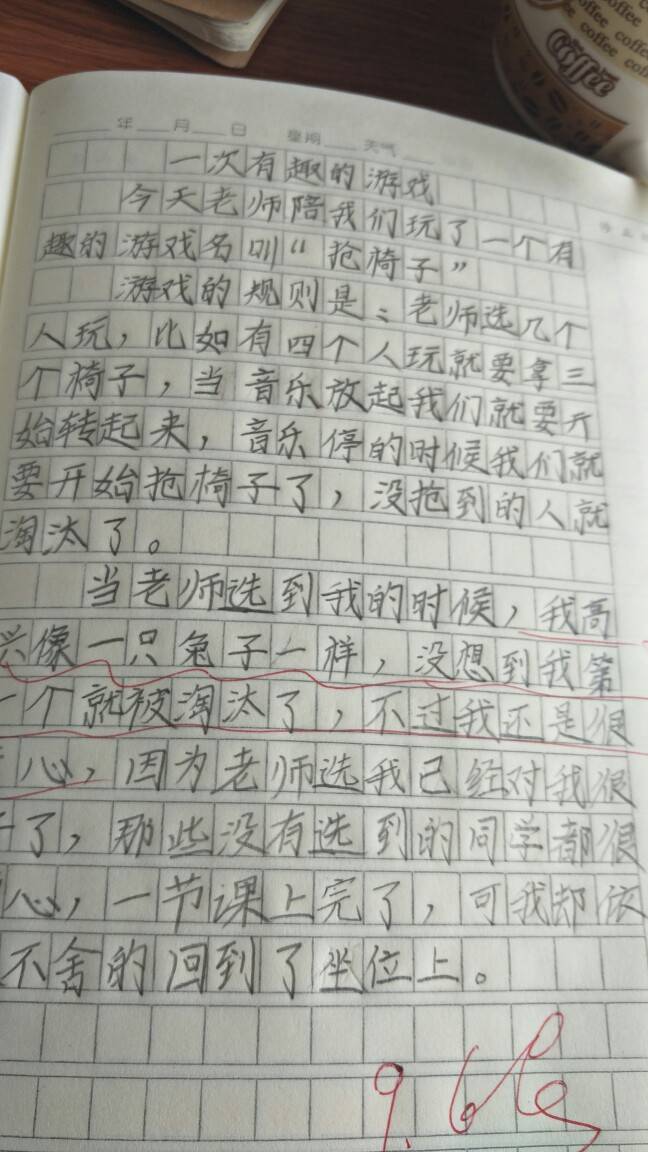 年 月 日 星期 天气
一次有趣的游戏
今天老师陪我们玩了一个有
趣的游戏名叫“抢椅子”
游戏的规则是：老师选几个
人玩，比如有四个人玩就要拿三
个椅子，当音乐放起我们就要开
始转起来，音乐停的时候我们就
要开始抢椅子了，没抢到的人就
淘汰了。
当老师选到我的时候，我高
兴像一只兔子一样，没想到我第
一个就被淘汰了，不过我还是很
心，因为老师选我已经对我很
了，那些没有选到的同学都很
心，一节课上完了，可我却依
不舍的回到了坐位上。
9.6
Coffee
coffee
coffee
coffee
coffee